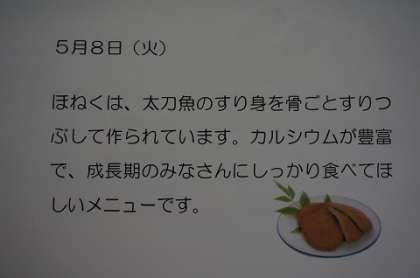 5月8日（火）
ほねくは、太刀魚のすり身を骨ごとすりつ
ぶして作られています。カルシウムが豊富
で、成長期のみなさんにしっかり食べてほ
しいメニューです。